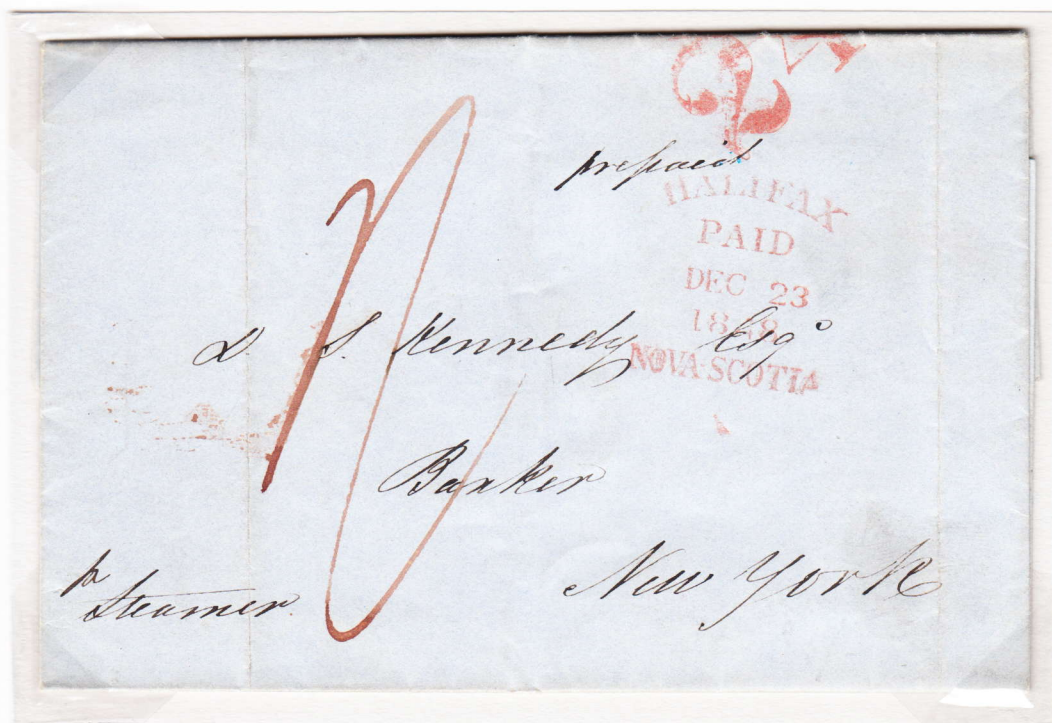 24
prepaid
HALIFAX
PAID
DEC 23
1848
NOVA·SCOTIA
D. S. Kennedy Esqº
Banker
New York
pr
Steamer